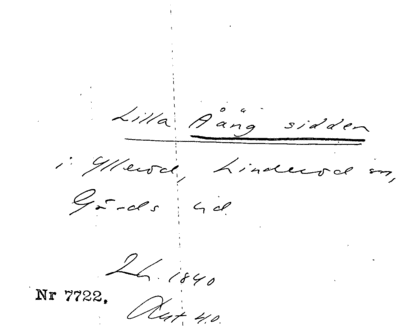 Lilla Aäng sidden
i Ylleröd, Linderöd sn,
Gärds hd.
Lh. 1840
Nr 7722.